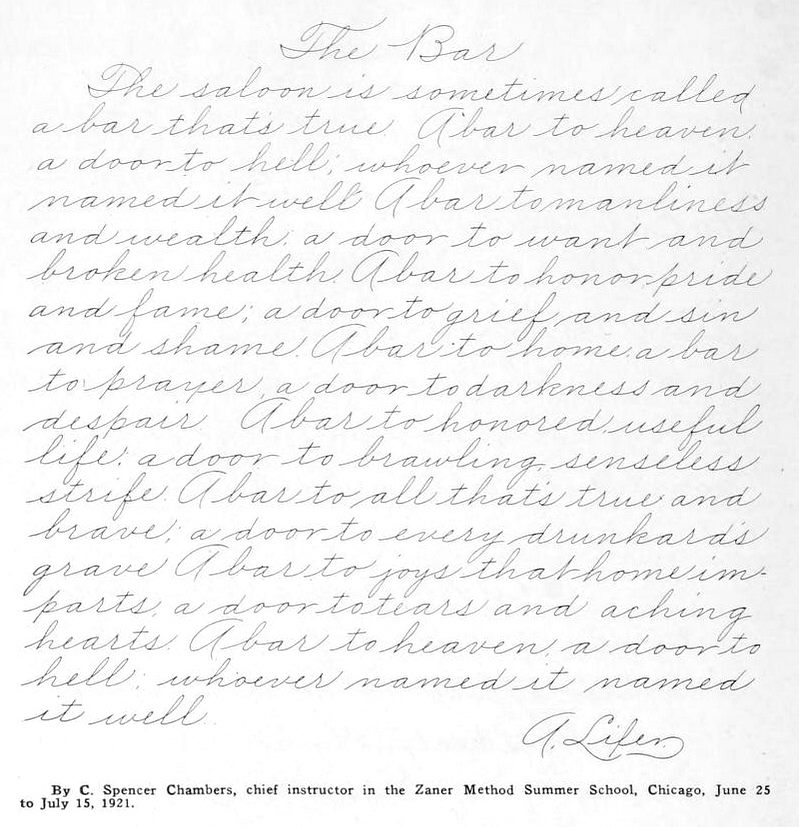 The Bar
The saloon is sometimes called
a bar that's true. A bar to heaven,
a door to hell; whoever named it
named it well. A bar to manliness
and wealth; a door to want and
broken health. A bar to honor, pride
and fame; a door to grief, and sin
and shame. A bar to home, a bar
to prayer, a door to darkness and
despair. A bar to honored, useful
life; a door to brawling, senseless
strife. A bar to all that's true and
brave; a door to every drunkard's
grave. A bar to joys that home im-
parts, a door to tears and aching
hearts. A bar to heaven, a door to
hell; whoever named it named
it well.
A. Lifer.
By C. Spencer Chambers, chief instructor in the Zaner Method Summer School, Chicago, June 25
to July 15, 1921.